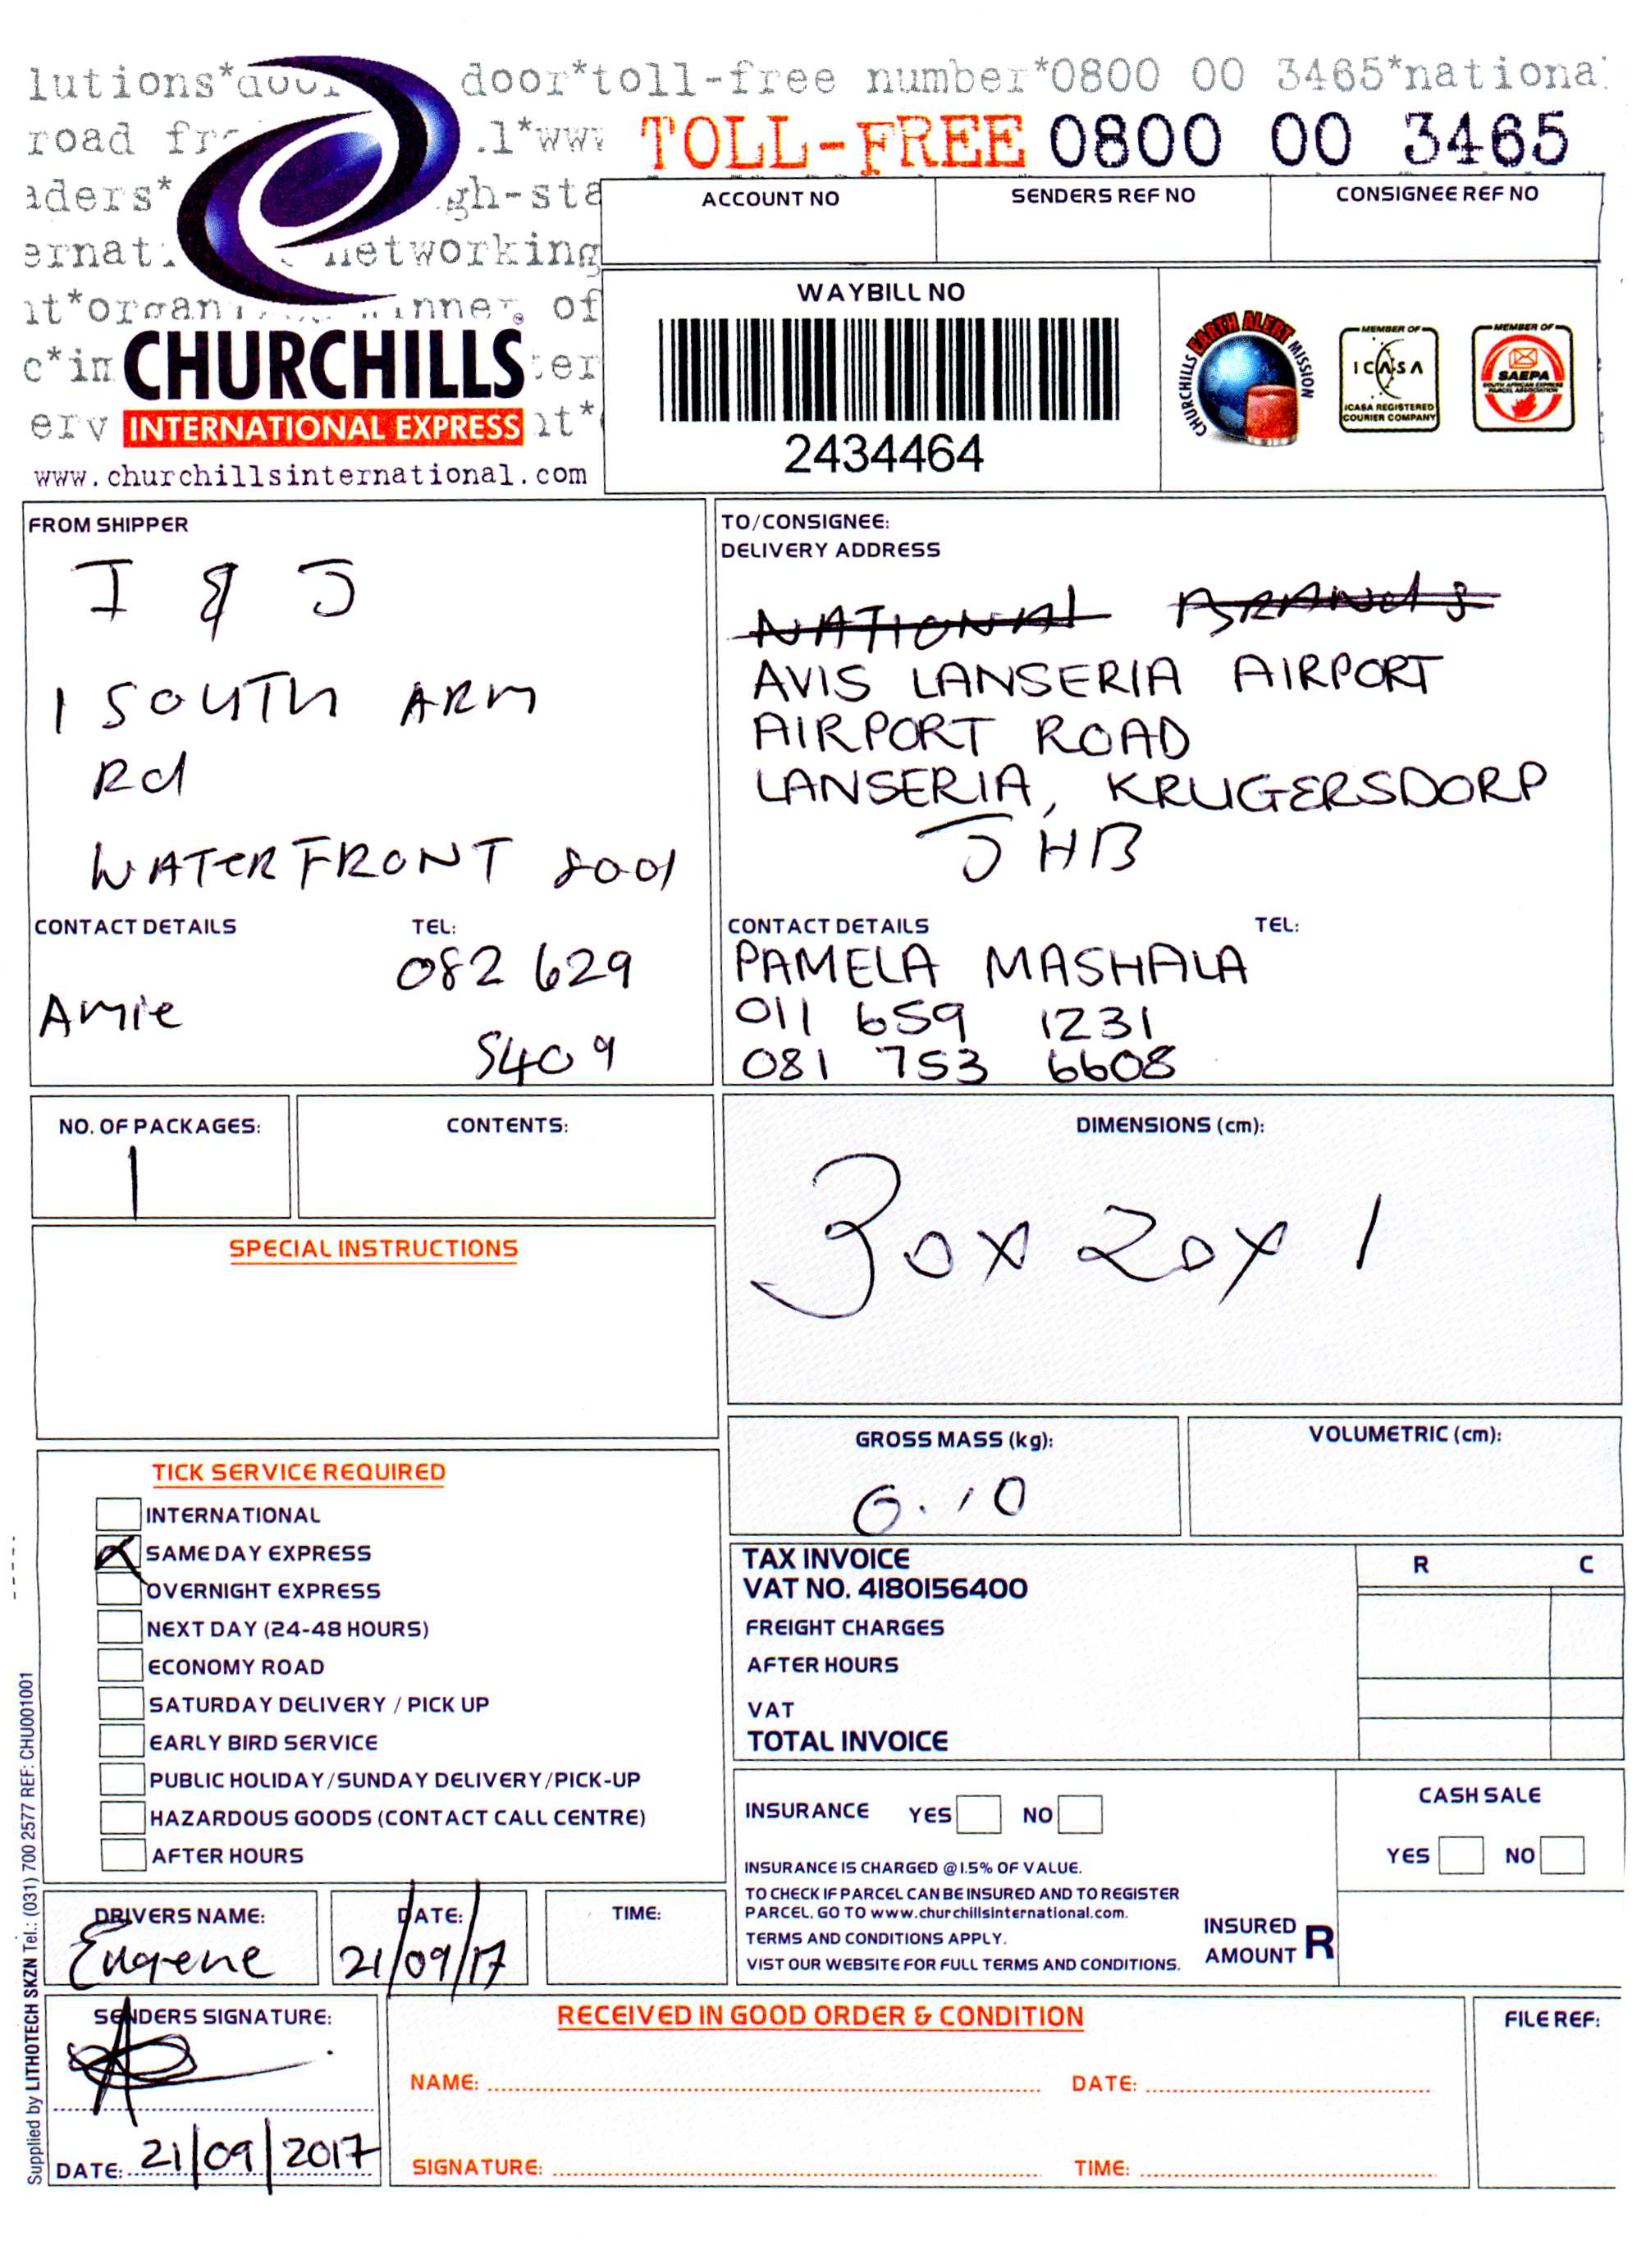 lutions*door door*toll-free number*0800 00 3465*national
road fr .l*www TOLL-FREE 0800 00 3465
aders* gh-sta
ernat networking
nt*organ inner of
c*in ter
erv nt*
CHURCHILLS
INTERNATIONAL EXPRESS
www.churchillsinternational.com
ACCOUNT NO SENDERS REF NO CONSIGNEE REF NO
WAYBILL NO
2434464
CHURCHILLS EARTH ALERT MISSION
MEMBER OF
ICASA
ICASA REGISTERED
COURIER COMPANY
MEMBER OF
SAEPA
SOUTH AFRICAN EXPRESS
PARCEL ASSOCIATION
FROM SHIPPER
I & J
1 SOUTH ARM
Rd
WATERFRONT 8001
CONTACT DETAILS TEL:
082 629
Amie
5409
TO/CONSIGNEE:
DELIVERY ADDRESS
NATIONAL BRANDS
AVIS LANSERIA AIRPORT
AIRPORT ROAD
LANSERIA, KRUGERSDORP
JHB
CONTACT DETAILS TEL:
PAMELA MASHALA
011 659 1231
081 753 6608
NO. OF PACKAGES: CONTENTS:
1
DIMENSIONS (cm):
30x 20x 1
SPECIAL INSTRUCTIONS
GROSS MASS (kg): VOLUMETRIC (cm):
0.10
TICK SERVICE REQUIRED
INTERNATIONAL
SAME DAY EXPRESS
OVERNIGHT EXPRESS
NEXT DAY (24-48 HOURS)
ECONOMY ROAD
SATURDAY DELIVERY / PICK UP
EARLY BIRD SERVICE
PUBLIC HOLIDAY/SUNDAY DELIVERY/PICK-UP
HAZARDOUS GOODS (CONTACT CALL CENTRE)
AFTER HOURS
TAX INVOICE R C
VAT NO. 4180156400
FREIGHT CHARGES
AFTER HOURS
VAT
TOTAL INVOICE
INSURANCE YES NO
INSURANCE IS CHARGED @1.5% OF VALUE.
TO CHECK IF PARCEL CAN BE INSURED AND TO REGISTER
PARCEL. GO TO www.churchillsinternational.com.
TERMS AND CONDITIONS APPLY.
VIST OUR WEBSITE FOR FULL TERMS AND CONDITIONS.
INSURED
AMOUNT R
CASH SALE
YES NO
DRIVERS NAME: DATE: TIME:
Eugene 21/09/17
SENDERS SIGNATURE:
DATE: 21/09/2017
RECEIVED IN GOOD ORDER & CONDITION
NAME: DATE:
SIGNATURE: TIME:
FILE REF:
Supplied by LITHOTECH SKZN Tel.: (031) 700 2577 REF: CHU001001